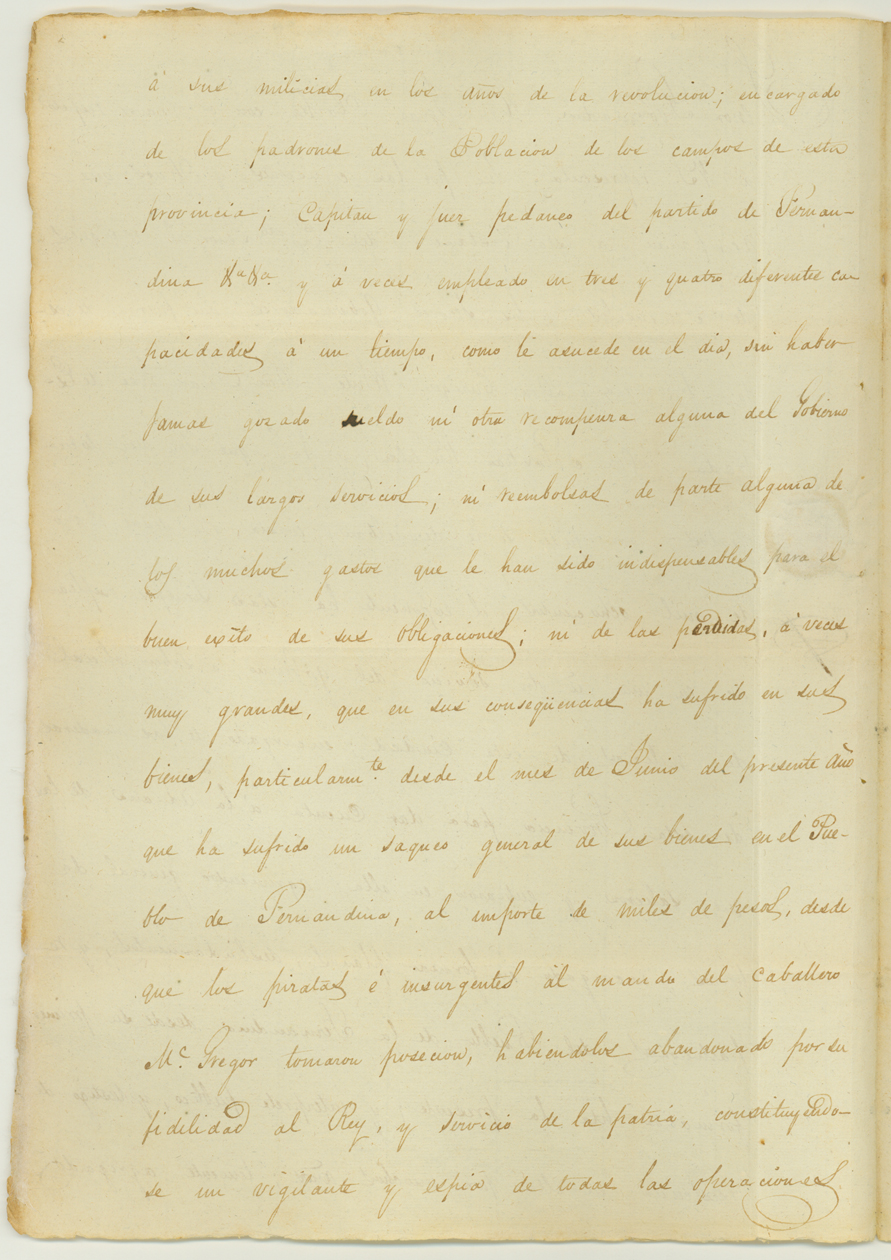 á sus milicias en los años de la revolucion; encargado
de los padrones de la Poblacion de los campos de esta
provincia; Capitan y juez pedáneo del partido de Fernan-
dina &a &a. y á veces empleado en tres y quatro diferentes ca-
pacidades á un tiempo, como le asucede en el dia, sin haber
jamas gozado sueldo ni otra recompensa alguna del Gobierno
de sus largos servicios; ni reembolsas de parte alguna de
los muchos gastos que le han sido indispensables para el
buen exîto de sus obligaciones; ni de las perdidas, á veces
muy grandes, que en sus conseqüencias ha sufrido en sus
bienes, particularmte. desde el mes de Junio del presente año
que ha sufrido un saqueo general de sus bienes en el Pue-
blo de Fernandina, al importe de miles de pesos, desde
que los piratas é insurgentes al mando del Caballero
Mc. Gregor tomaron posecion, habiendolos abandonado por su
fidilidad al Rey, y servicio de la patria, constituyendo-
se un vigilante y espia de todas las operaciones